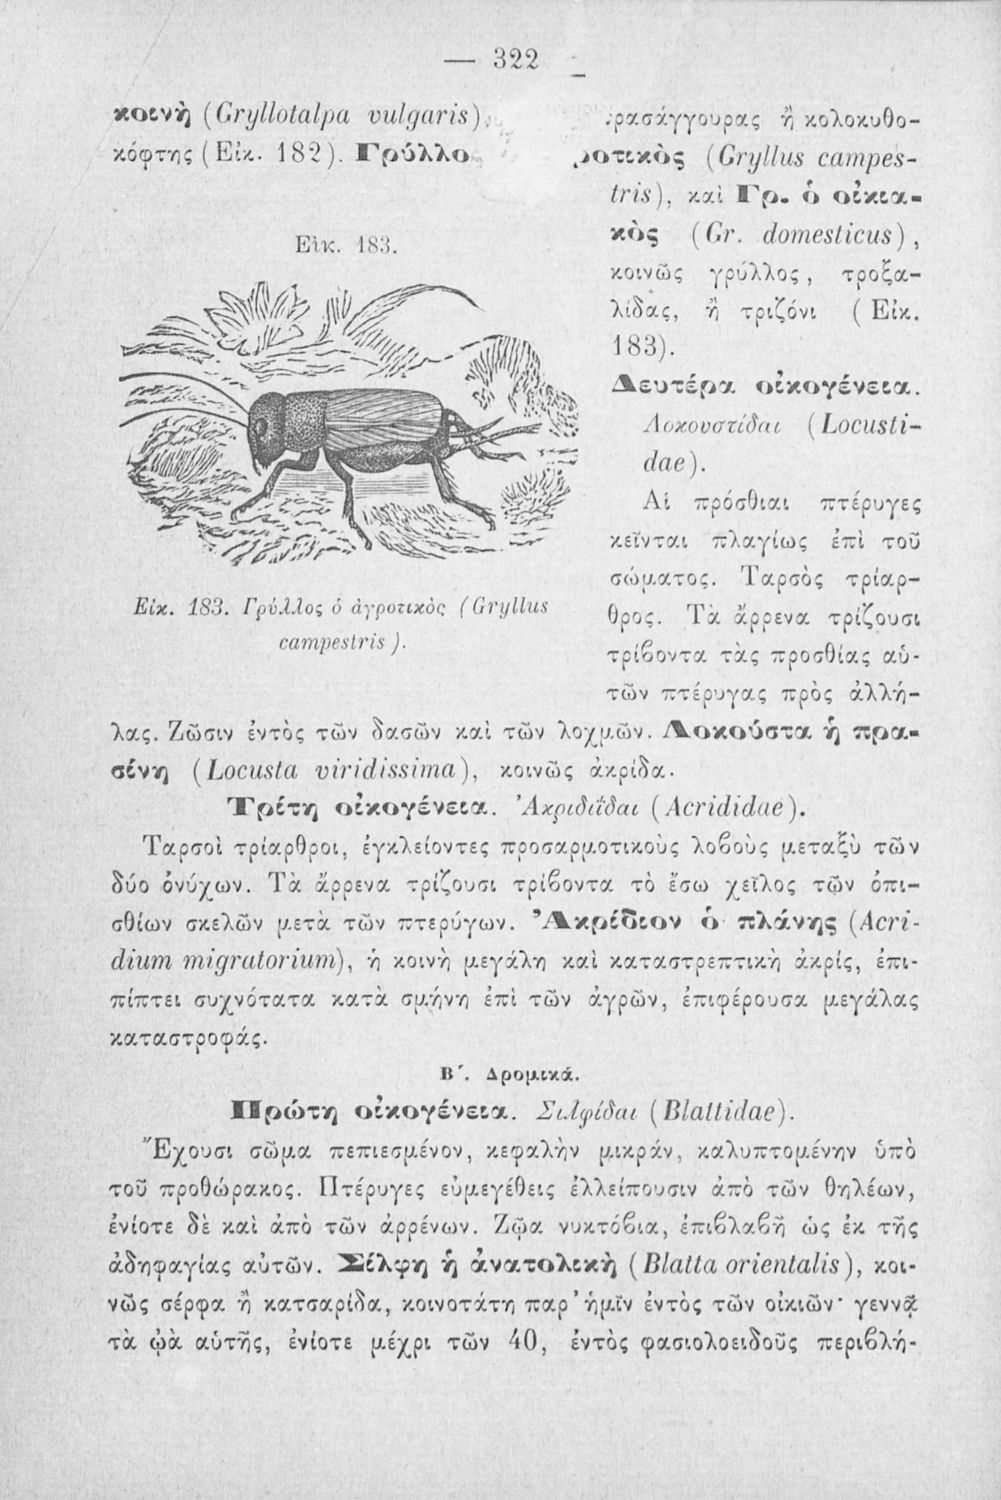 — 322
κοινὴ (Gryllotalpa vulgaris) ρασάγγουρας ἢ κολοκυθο-
κόφτης (Εἰκ. 182). Γρύλλο οτικὸς (Gryllus campes-
tris), καὶ Γρ. ὁ οἰκια-
κὸς (Gr. domesticus),
κοινῶς γρύλλος, τροξα-
λίδας, ἢ τριζόνι (Εἰκ.
183).
Εἰκ. 183.
Εἰκ. 183. Γρύλλος ὁ ἀγροτικὸς (Gryllus
campestris).
Δευτέρα οἰκογένεια.
Λοκουστίδαι (Locusti-
dae).
Αἱ πρόσθιαι πτέρυγες
κεῖνται πλαγίως ἐπὶ τοῦ
σώματος. Ταρσὸς τρίαρ-
θρος. Τὰ ἄρρενα τρίζουσι
τρίβοντα τὰς προσθίας αὑ-
τῶν πτέρυγας πρὸς ἀλλή-
λας. Ζῶσιν ἐντὸς τῶν δασῶν καὶ τῶν λοχμῶν. Λοκούστα ἡ πρα-
σίνη (Locusta viridissima), κοινῶς ἀκρίδα.
Τρίτη οἰκογένεια. Ἀκριδιΐδαι (Acrididae).
Ταρσοὶ τρίαρθροι, ἐγκλείοντες προσαρμοτικοὺς λοβοὺς μεταξὺ τῶν
δύο ὀνύχων. Τὰ ἄρρενα τρίζουσι τρίβοντα τὸ ἔσω χεῖλος τῶν ὀπι-
σθίων σκελῶν μετὰ τῶν πτερύγων. Ἀκρίδιον ὁ πλάνης (Acri-
dium migratorium), ἡ κοινὴ μεγάλη καὶ καταστρεπτικὴ ἀκρίς, ἐπι-
πίπτει συχνότατα κατὰ σμήνη ἐπὶ τῶν ἀγρῶν, ἐπιφέρουσα μεγάλας
καταστροφάς.
Β΄. Δρομικά.
Πρώτη οἰκογένεια. Σιλφίδαι (Blattidae).
Ἔχουσι σῶμα πεπιεσμένον, κεφαλὴν μικράν, καλυπτομένην ὑπὸ
τοῦ προθώρακος. Πτέρυγες εὐμεγέθεις ἐλλείπουσιν ἀπὸ τῶν θηλέων,
ἐνίοτε δὲ καὶ ἀπὸ τῶν ἀρρένων. Ζῷα νυκτόβια, ἐπιβλαβῆ ὡς ἐκ τῆς
ἀδηφαγίας αὐτῶν. Σίλφη ἡ ἀνατολικὴ (Blatta orientalis), κοι-
νῶς σέρφα ἢ κατσαρίδα, κοινοτάτη παρ' ἡμῖν ἐντὸς τῶν οἰκιῶν· γεννᾷ
τὰ ᾠὰ αὑτῆς, ἐνίοτε μέχρι τῶν 40, ἐντὸς φασιολοειδοῦς περιβλή-